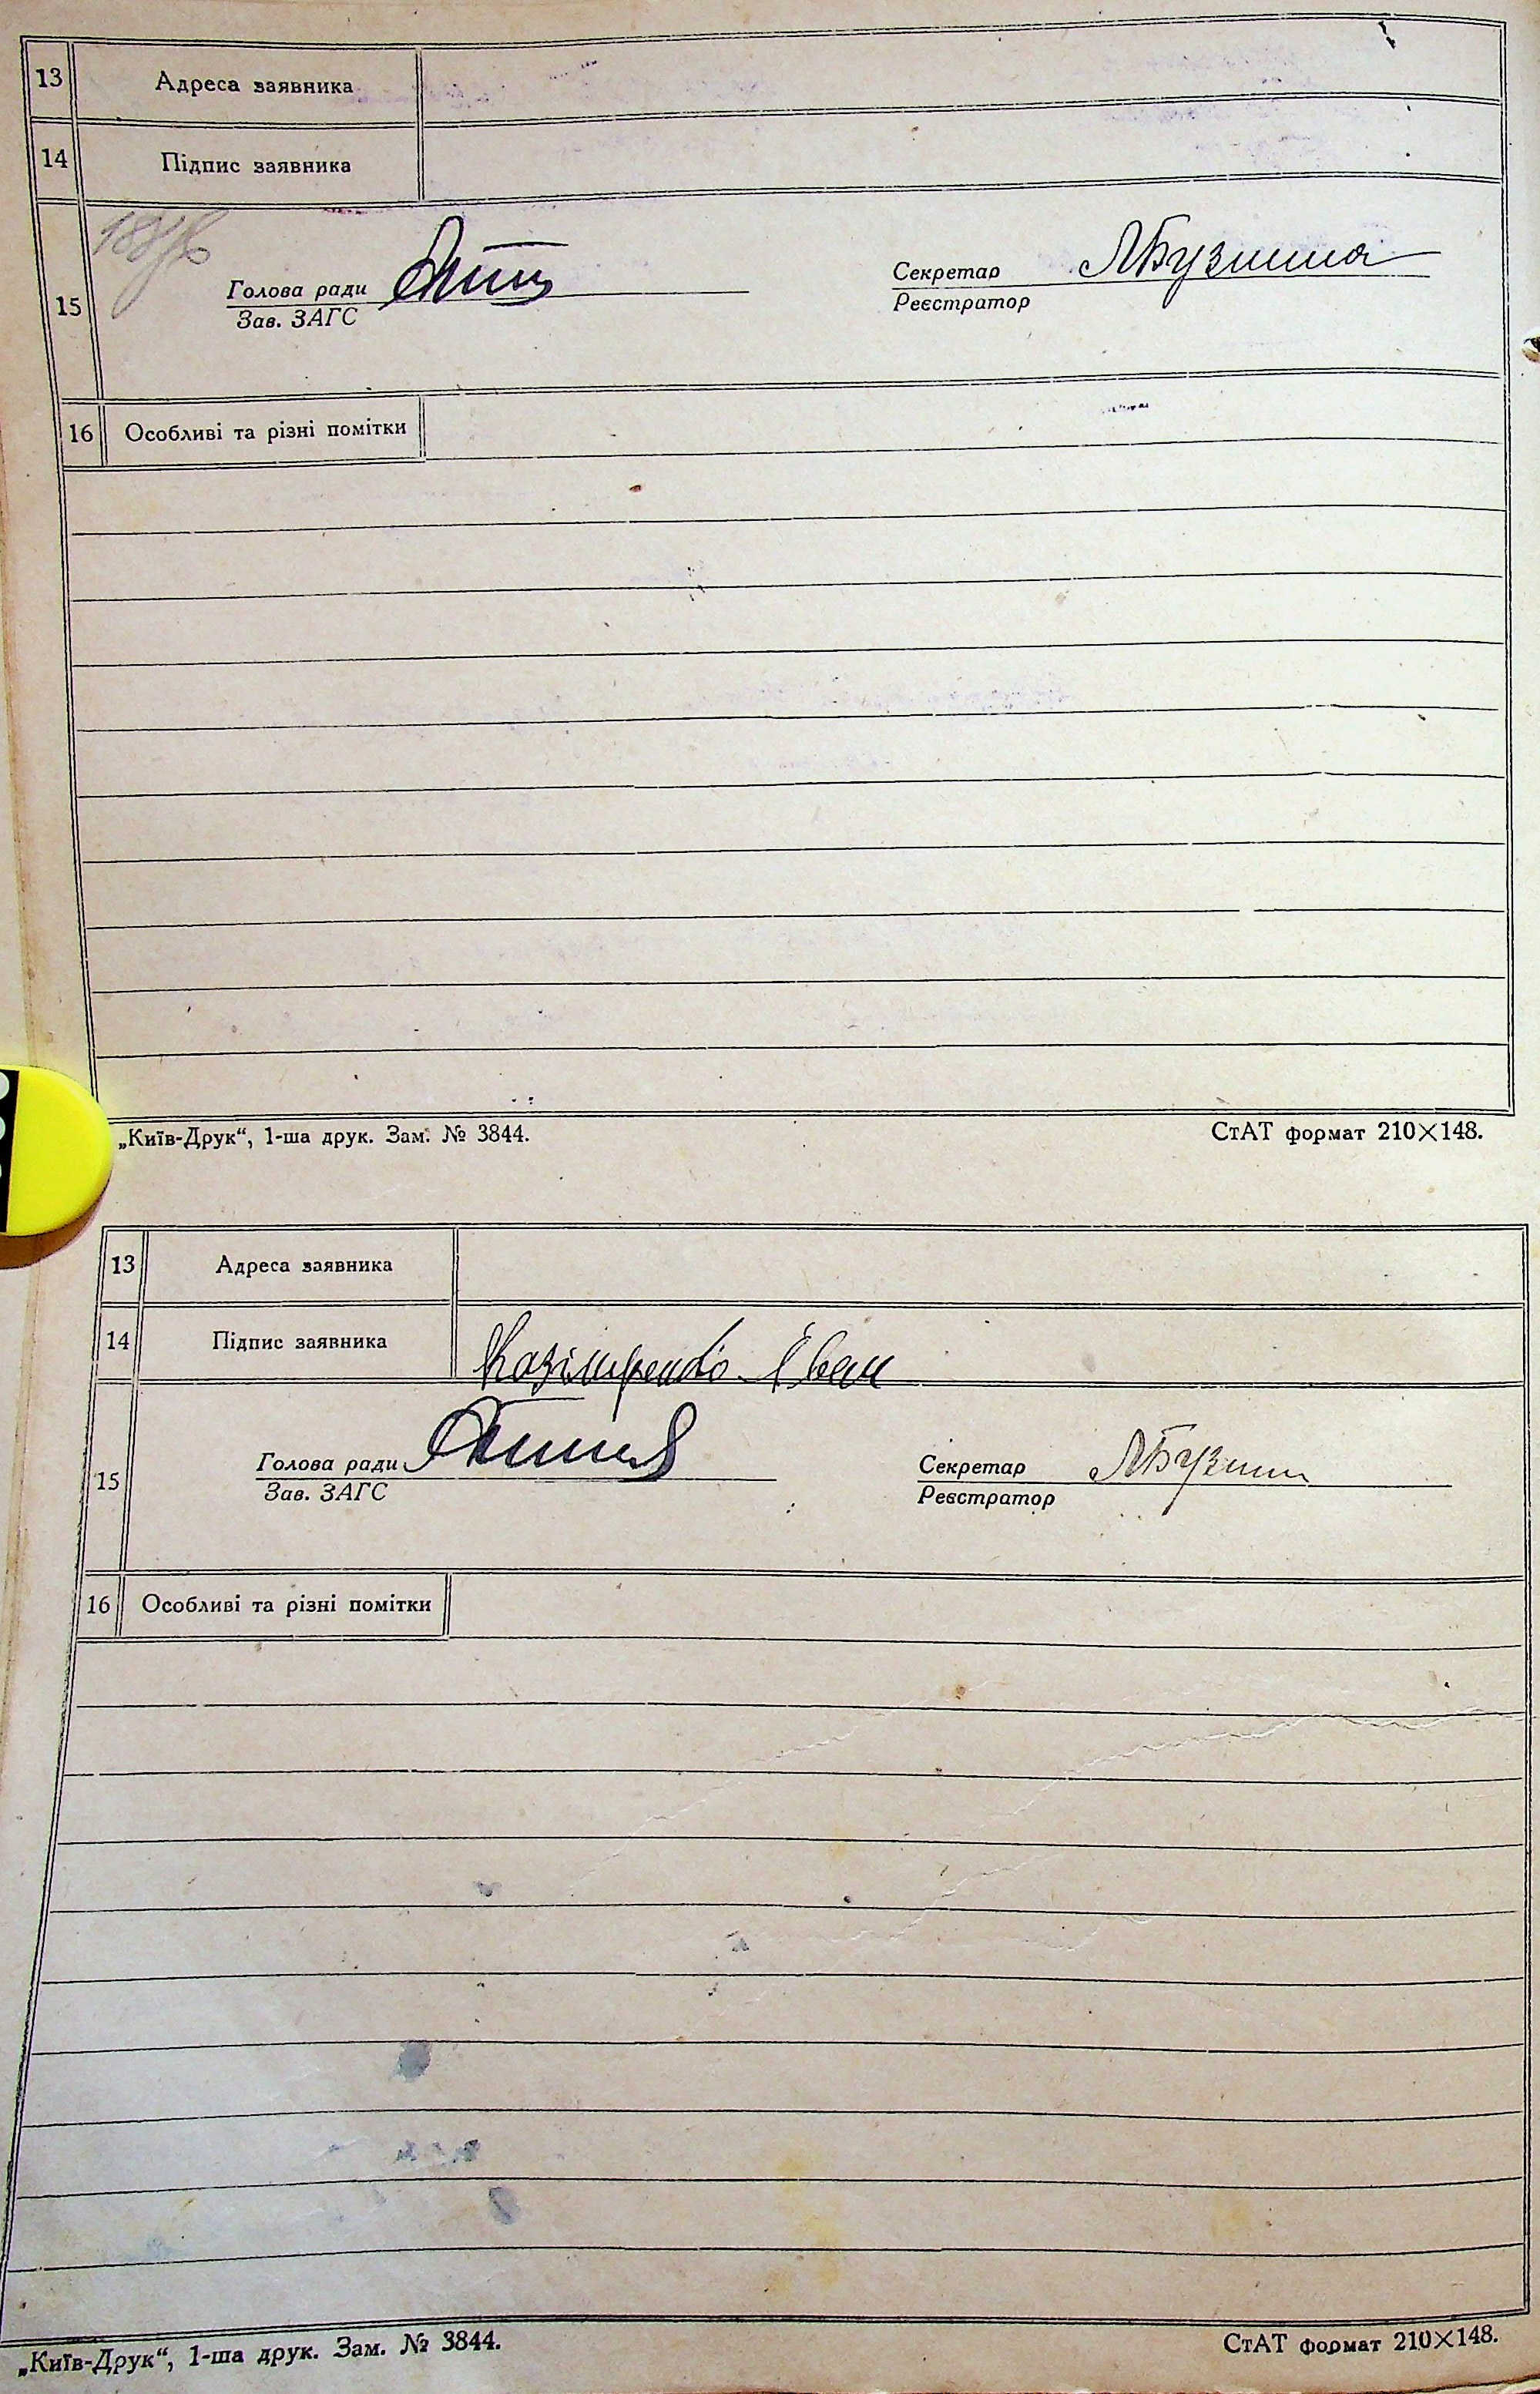 13 Адреса заявника
14 Підпис заявника
15
Голова ради
Зав. ЗАГС
Секретар ЛБузиина
Реєстратор
16 Особливі та різні помітки
„Київ-Друк“, 1-ша друк. Зам. № 3844. СтАТ формат 210×148.
13 Адреса заявника
14 Підпис заявника Казімиренко Іван
15
Голова ради
Зав. ЗАГС
Секретар
Реєстратор
16 Особливі та різні помітки
„Київ-Друк“, 1-ша друк. Зам. № 3844. СтАТ формат 210×148.